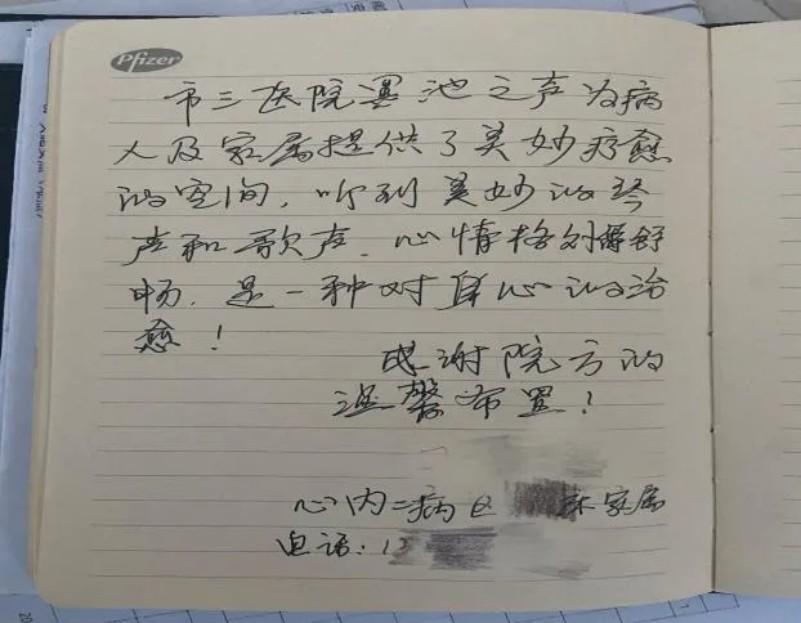 Pfizer
市三医院滇池之声为病
人及家属提供了美妙疗愈
的空间，听到美妙的琴
声和歌声，心情格外舒
畅，是一种对身心的治
愈！
感谢院方的
温馨布置！
心内二病区 床家属
电话：1